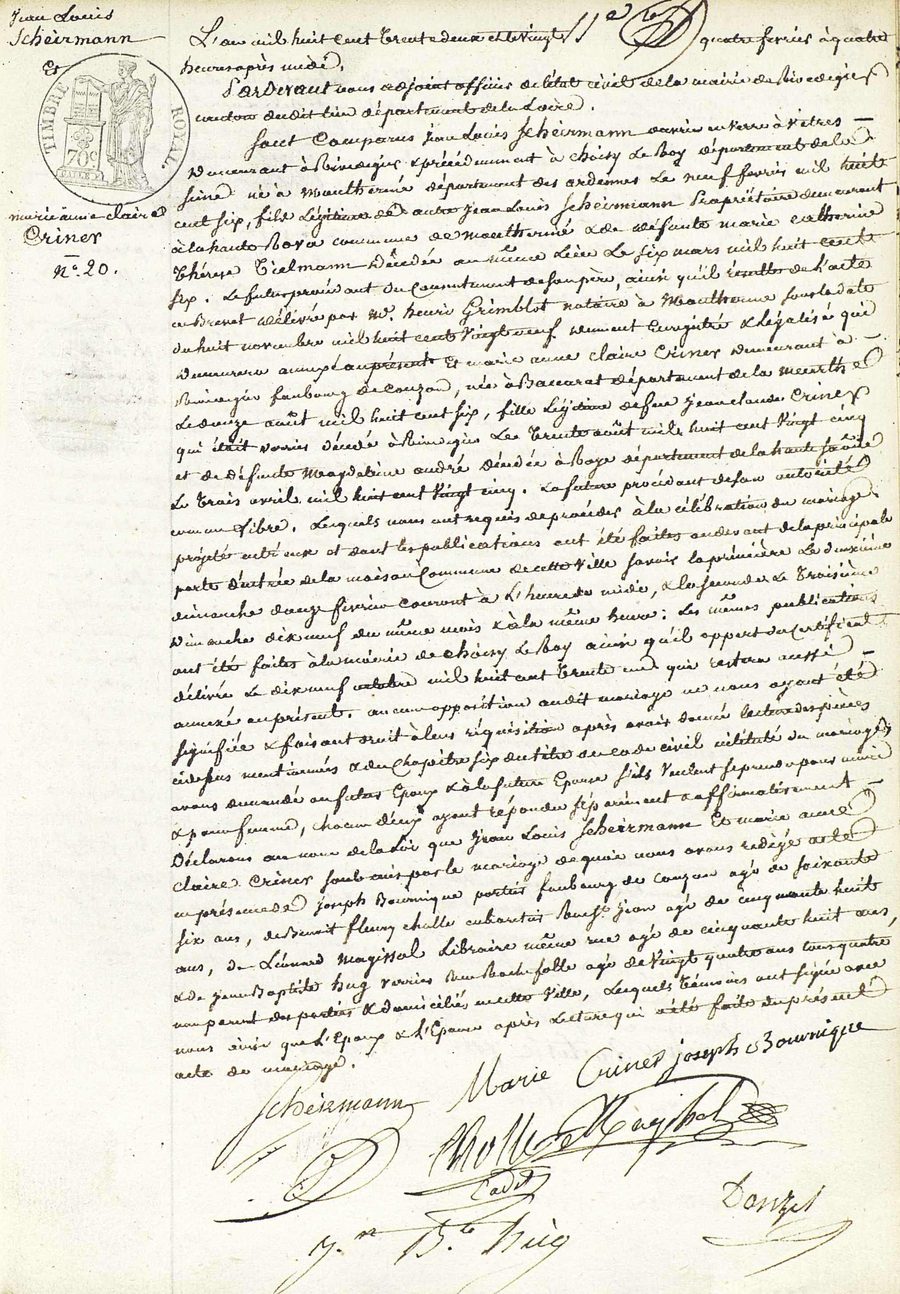 Jean Louis
Scheirmann
Et
TIMBRE ROYAL
70c
marie anne claire
Criner
No. 20.
11e
L'an mil huit cent trente deux et le vingt quatre fevrier à quatre
heures après midi,
Pardevant nous adjoint officier de l'état civil de la mairie de Rivedegier
canton dudit lieu département de la Loire.
Sont Comparus Jean Louis Scheirmann ouvrier en verre à vitres
Demeurant à Rivedegier & précédemment à Choisy Le Roy département de la
Seine né à Monthermé département des ardennes Le neuf fevrier mil huit
cent six, fils Légitime de autre Jean Louis Scheirmann Propriétaire demeurant
à la haute Rova commune de Monthermé & de défunte marie catherine
Thérèse Tielmann Décédée au même Lieu Le six mars mil huit cent
six. Le futur procédant du Consentement de son père, ainsi qu'il résulte de l'acte
en Brevet délivré par Me. henri Grimblot notaire à Monthermé sous la date
du huit novembre mil huit cent vingt neuf dument Enregistré & légalisé qui
Demeurera annexé au présent Et marie anne claire Criner demeurant à
Rivedegier faubourg de couzon, née à Baccarat département de la meurthe
Le douze août mil huit cent six, fille Légitime de feu Jean claude Criner
qui était verrier décédé à Rivedegier Le trente août mil huit cent vingt cinq
et de défunte Magdeleine andré Décédée à Roye département de la haute saône
Le trois avril mil huit cent vingt cinq. La future procédant de son autorité
comme Libre. Lesquels nous ont requis de procéder à la célébration du mariage
projeté entr'eux et dont les publications ont été faites audevant de la principale
porte d'entrée de la maison Commune de cette Ville savoir la première Le deuxième
dimanche douze fevrier courant à L'heure de midi, & la seconde Le Troisième
Dimanche dix neuf du même mois & à la même heure: Les mêmes publications
ont été faites à la mairie de Choisy Le Roy ainsi qu'il appert du Certificat
délivré Le dix neuf octobre mil huit cent trente un qui restera aussi
annexé au présent. aucune opposition audit mariage ne nous ayant été
signifiée & faisant droit à leur réquisition après avoir donné lecture des pièces
cidessus mentionnés & du Chapitre six du titre du code civil intitulé du mariage,
avons demandé au futur Epoux & à la future Epouse s'ils veulent se prendre pour mari
& pour femme, chacun d'eux ayant répondu séparément & affirmativement
Déclarons au nom de la Loi que Jean Louis Scheirmann Et marie anne
claire Criner sont unis par le mariage de quoi nous avons rédigé acte
en présence de Joseph Bournique portier faubourg de Couzon agé de soixante
six ans, de Benoit fleury cholle cabaretier Rue St. Jean agé de cinquante huit
ans, de Léonard Magissol Libraire même rue agé de cinquante huit ans,
& de Jean Baptiste hug verrier Rue Rochefolle agé de Vingt quatre ans tous quatre
non parent des parties & domiciliés en cette Ville, Lesquels témoins ont signé avec
nous ainsi que L'Epoux & L'Epouse après Lecture qui a été faite du présent
acte de mariage.
Scheirmann Marie Criner joseph Bournique
Cholle
Cadet
Donzel
J.n B.te hüg